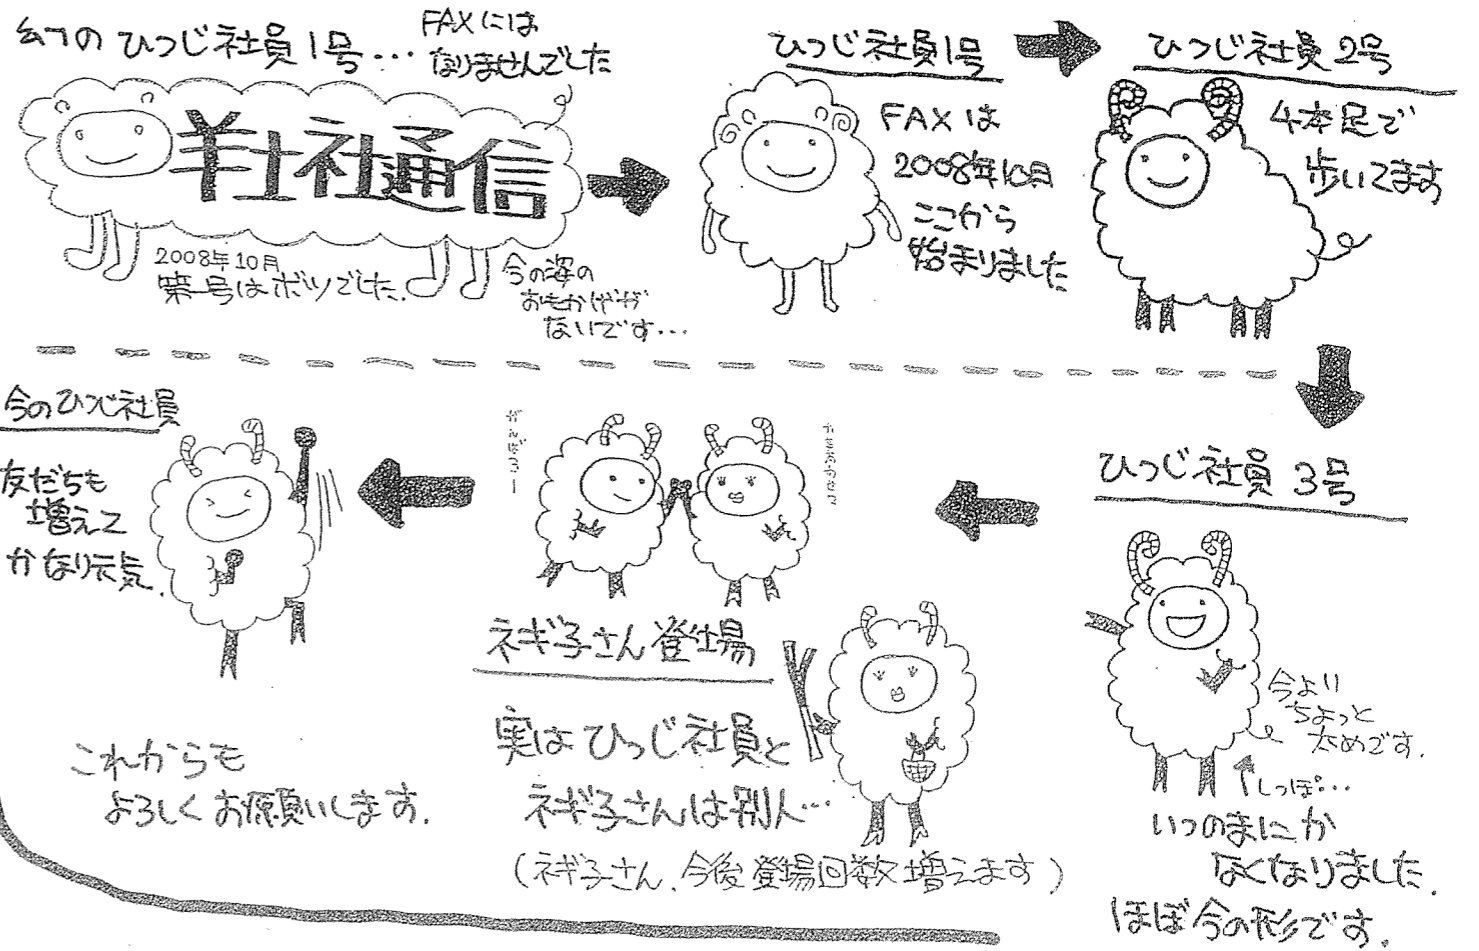 幻のひつじ社員1号…
FAXには
なりませんでした
羊土社通信
2008年10月
第一号はボツでした.
今の姿の
おもかげが
ないです…
ひつじ社員1号
FAXは
2008年10月
ここから
始まりました
ひつじ社員2号
4本足で
歩いてます
ひつじ社員3号
今より
ちょっと
太めです.
しっぽ…
いつのまにか
なくなりました.
ほぼ今の形です.
ネギ子さん登場
実はひつじ社員と
ネギ子さんは別人…
(ネギ子さん、今後登場回数増えます)
今のひつじ社員
友だちも
増えて
かなり元気.
これからも
よろしくお願いします.